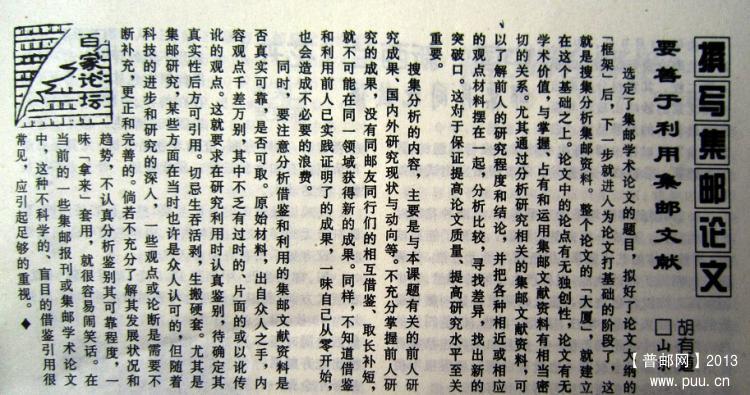 撰写集邮论文
要善于利用集邮文献
胡有
□山东
选定了集邮学术论文的题目，拟好了论文大纲的
「框架」后，下一步就进入为论文打基础的阶段了，这
就是搜集分析集邮资料。整个论文的「大厦」，就建立
在这个基础之上。论文中的论点有无独创性，论文有无
学术价值，与掌握、占有和运用集邮文献资料有相当密
切的关系。尤其通过分析研究相关的集邮文献资料，可
以了解前人的研究程度和结论，并把各种相近或相应
的观点材料摆在一起，分析比较，寻找差异，找出新的
突破口。这对于保证提高论文质量、提高研究水平至关
重要。
搜集分析的内容，主要是与本课题有关的前人研
究成果、国内外研究现状与动向等。不充分掌握前人研
究的成果，没有同邮友同行们的相互借鉴、取长补短，
就不可能在同一领域获得新的成果。同样，不知道借鉴
和利用前人已实践证明了的成果，一味自己从零开始，
也会造成不必要的浪费。
同时，要注意分析借鉴和利用的集邮文献资料是
否真实可靠，是否可取。原始材料，出自众人之手，内
容观点千差万别，其中不乏有过时的、片面的或以讹传
讹的观点。这就要求在研究利用时认真鉴别，待确定其
真实性后方可引用。切忌生吞活剥，生搬硬套。尤其是
集邮研究，某些方面在当时也许是众人认可的，但随着
科技的进步和研究的深入，一些观点或论断是需要不
断补充，更正和完善的。倘若不充分了解其发展状况和
趋势，不认真分析鉴别其可靠程度，一
味「拿来」套用，就很容易闹笑话。在
当前的一些集邮报刊或集邮学术论文
中，这种不科学的、盲目的借鉴引用很
常见，应引起足够的重视。◆
百家论坛
【普邮网】2013
www.puu.cn